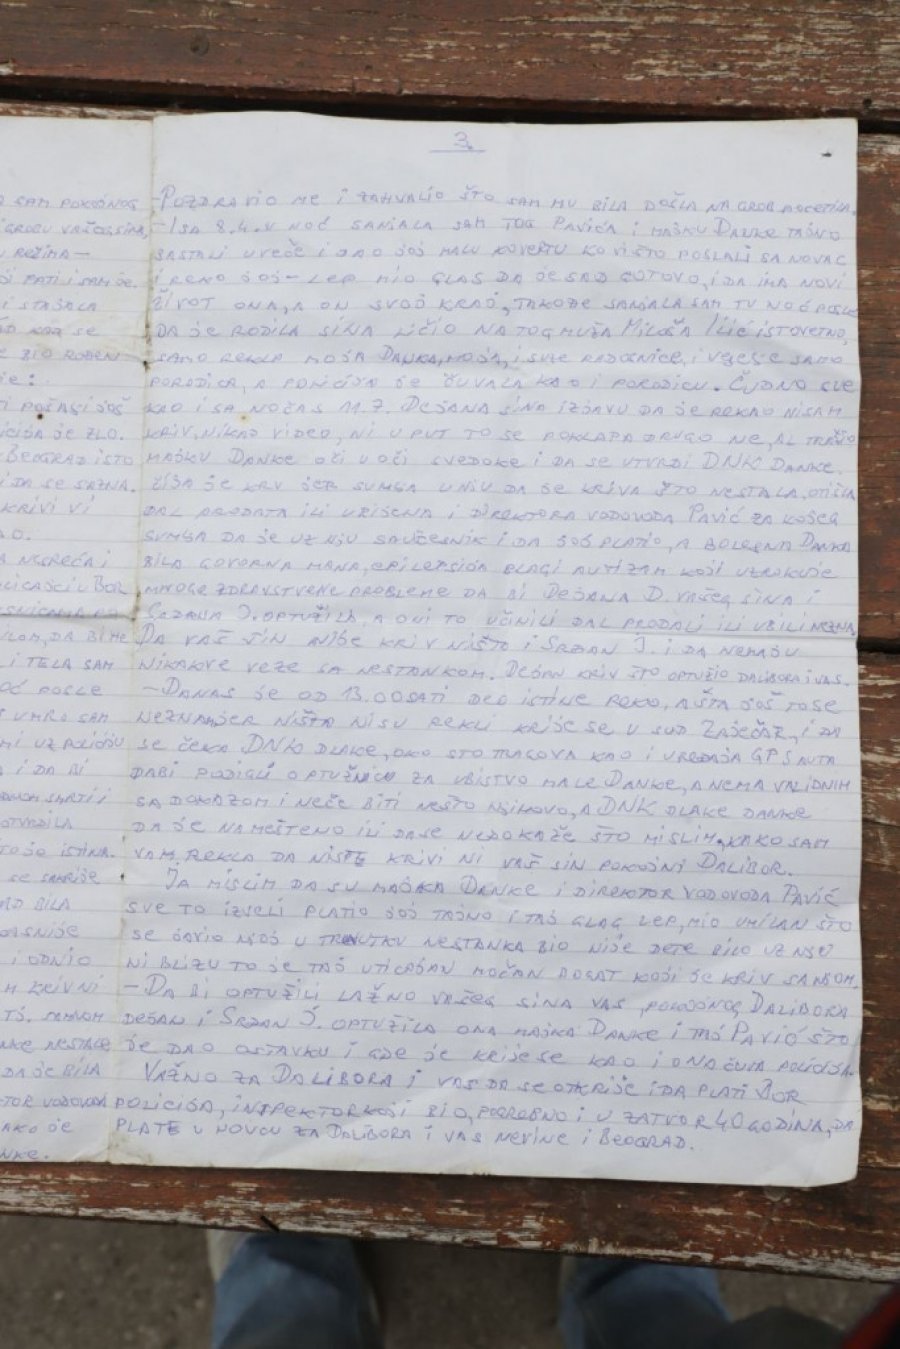 3.
O SAM POKOJNOG
GROBU VAŠEG SINA,
U REŽIMA—
I STASALA
KAO SE
E BIO ROĐEN
JE:
I POŠALJI JOŠ
ICIJA JE ZLO.
BEOGRAD ISTO
I DA SE SAZNA.
KRIVI VI
O.
A NESREĆA I
I TELA SAM
OĆ POSLE
UMRO SAM
MI UZ POLICIJU
A I DA BI
SMRTI I
OTVRDILA
TO JE ISTINA.
SE SAKRIJE
BILA
KASNIJE
I ODNIO
M KRIVNI
NKE NESTALE
DA JE BILA
KTOR VODOVODA
AKO JE
NKE.
-POZDRAVIO ME I ZAHVALIO ŠTO SAM MU BILA DOŠLA NA GROB POKOJNIKA.
-I SA 8.4. V NOĆ SANJALA SAM TOG PAVIĆA I MAJKU DANKE TAJNO
SASTALI UVEČE I DAO JOJ MALU KOVERTU KOVIŠTO POSLALI SA NOVAC
I REKO JOJ - LEP MIO GLAS DA JE SAD GOTOVO, I DA IMA NOVI
ŽIVOT ONA, A ON SVOJ KRAJ, TAKOĐE SANJALA SAM TU NOĆ POSLE
DA JE RODILA SINA LIČIO NA TOG MUŽA MILOŠA ILIĆ ISTOVETNO,
SAMO REKLA MOJA DANKA, MOJA, I SUZE RADOSNICE, I VESELJE SAMO
PORODICA, A POLICIJA JE ČUVALA KAO I PORODICU. ČUDNO SVE
KAO I SA NOĆAS 11.7. DEJANA SINA IZJAVU DA JE REKAO NISAM
KRIV, NIKAD VIDEO, NI U PUT TO SE POKLAPA DRUGO NE, AL TRAŽIO
MAJKU DANKE OČI U OČI SVEDOKE I DA SE UTVRDI DNK DANKE.
ČIJA JE KRV JER SUMNJA U NJU DA JE KRIVA ŠTO NESTALA, OTIŠLA
DAL PRODATA ILI UBIJENA I DIREKTORA VODOVODA PAVIĆ ZA KOJEG
SUMNJA DA JE UZ NJU SAUČESNIK I DA JOJ PLATIO, A BOLESNA DANKA
BILA GOVORNA MANA, EPILEPSIJA BLAGI AUTIZAM KOJI UZROKUJE
MNOGE ZDRAVSTVENE PROBLEME DA BI DEJANA D. VAŠEG SINA I
SRĐANA J. OPTUŽILA, A OVI TO UČINILI DAL PRODALI ILI UBILI NEZNA,
DA VAŠ SIN NIJE KRIV NIŠTA I SRĐAN J. I DA NEMAJU
NIKAKVE VEZE SA NESTANKOM. DEJAN KRIV ŠTO OPTUŽIO DALIBORA I VAS.
-DANAS JE OD 13.00 SATI DEO ISTINE REKO, A ŠTA JOŠ TO SE
NEZNA JER NIŠTA NISU REKLI KRIJE SE U SUD ZAJEČAR, I DA
SE ČEKA DNK DLAKE, OKO STO TRAGOVA KAO I UREĐAJA GPS AUTA
DABI PODIGLI OPTUŽNICU ZA UBISTVO MALE DANKE, A NEMA VALIDNIH
SA DOKAZOM I NEĆE BITI NEŠTO NJIHOVO, A DNK DLAKE DANKE
DA JE NAMEŠTENO ILI DASE NEDOKAŽE ŠTO MISLIM, KAKO SAM
VAM REKLA DA NISTE KRIVI NI VAŠ SIN POKOJNI DALIBOR.
JA MISLIM DA SU MAJKA DANKE I DIREKTOR VODOVODA PAVIĆ
SVE TO IZVELI PLATIO JOJ TAJNO I TAJ GLAG LEP, MIO UMILAN ŠTO
SE JAVIO NJOJ U TRENUTKU NESTANKA BIO NIJE DETE BILO UZ NJU
NI BLIZU TO JE TAJ UTICAJAN MOĆAN BOGAT KOJI JE KRIV SA NJOM.
-DA BI OPTUŽILI LAŽNO VAŠEG SINA VAS, POKOJNOG DALIBORA
DEJAN I SRĐAN J. OPTUŽILA ONA MAJKA DANKE I TAJ PAVIĆ ŠTO
JE DAO OSTAVKU I GDE JE KRIJE SE KAO I ONA ČUVA POLICIJA.
VAŽNO ZA DALIBORA I VAS DA SE OTKRIJE I DA PLATI BOR
POLICIJA, INSPEKTOR KOJI BIO, POREDBNO I U ZATVOR 40 GODINA, DA
PLATE U NOVCU ZA DALIBORA I VAS NEVINE I BEOGRAD.